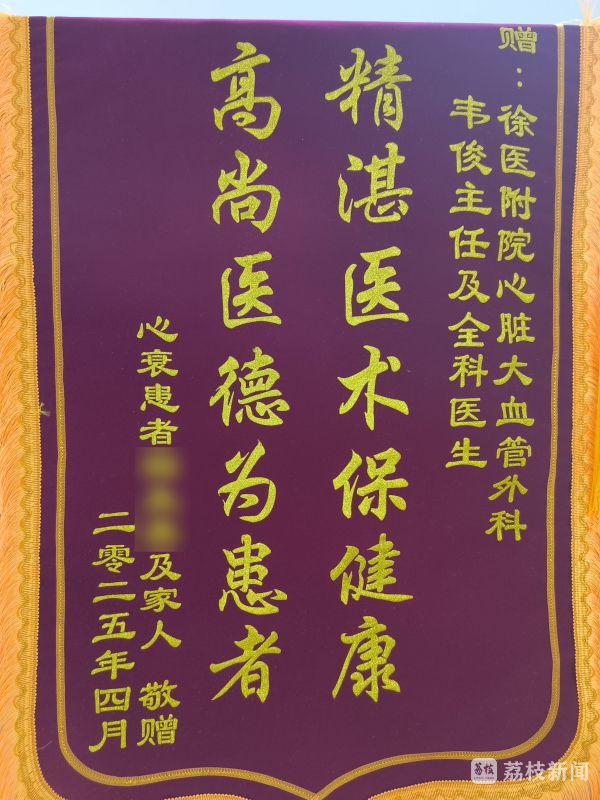 赠：徐医附院心脏大血管外科
韦俊主任及全科医生
精湛医术保健康
高尚医德为患者
心衰患者
及家人 敬赠
二零二五年四月
荔枝 荔枝新闻